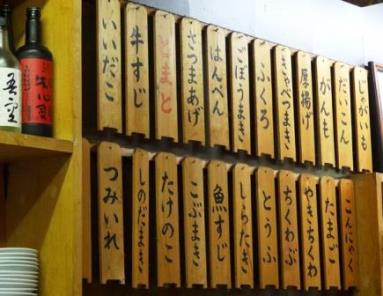 じゃがいも
だいこん
がんも
厚揚げ
きゃべつまき
ふくろ
ごぼうまき
はんぺん
さつまあげ
とまと
牛すじ
いいだこ
こんにゃく
たまご
やきちくわ
ちくわぶ
とうふ
しらたき
魚すじ
こぶまき
たけのこ
しのだまき
つみいれ